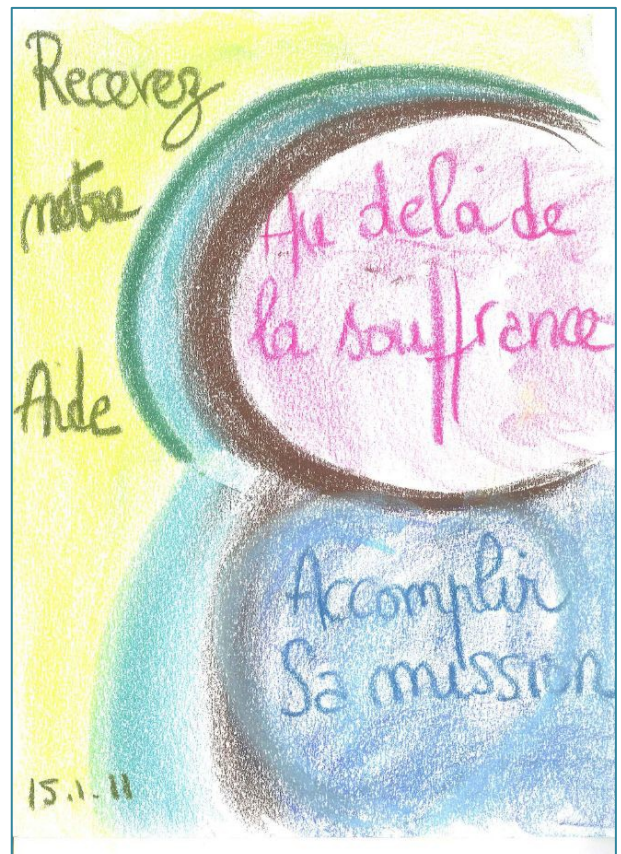 Recevez
notre
Aide
Au delà de
la souffrance
Accomplir
Sa mission
15.1.11